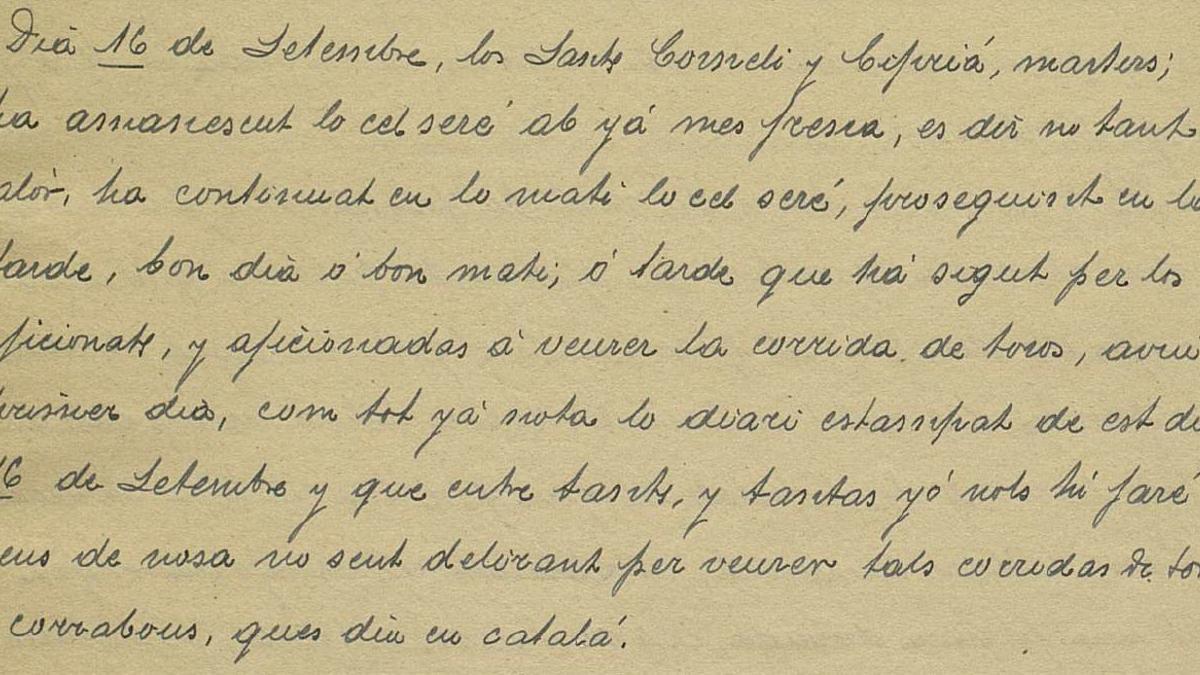 Dia 16 de Setembre, los Sants Corneli y Ciprià, martirs;
ha amanescut lo cel seré ab yá mes fresca, es dir no tant
calor, ha continuat en lo mati lo cel seré, proseguint en la
tarde, bon dia ó bon mati; ó tarde que há sigut per los
aficionats, y aficionadas á veurer la corrida de toros, avui
primer dia, com tot yá nota lo diari estampat de est dia
16 de Setembre y que entre tants, y tantas yó nols hi faré
de nosa no sent delirant per veurer tals corridas de toros
corrabous, ques diu en catalá.